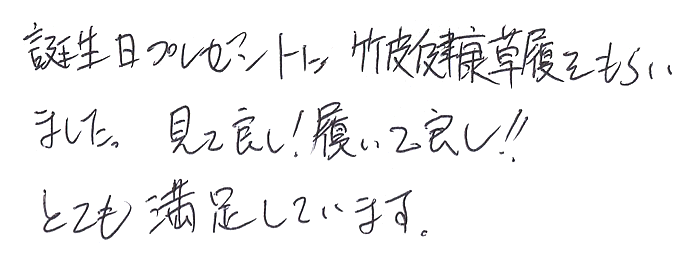 誕生日プレゼントに竹皮健康草履をもらい
ました。見て良し!履いて良し!!
とても満足しています。